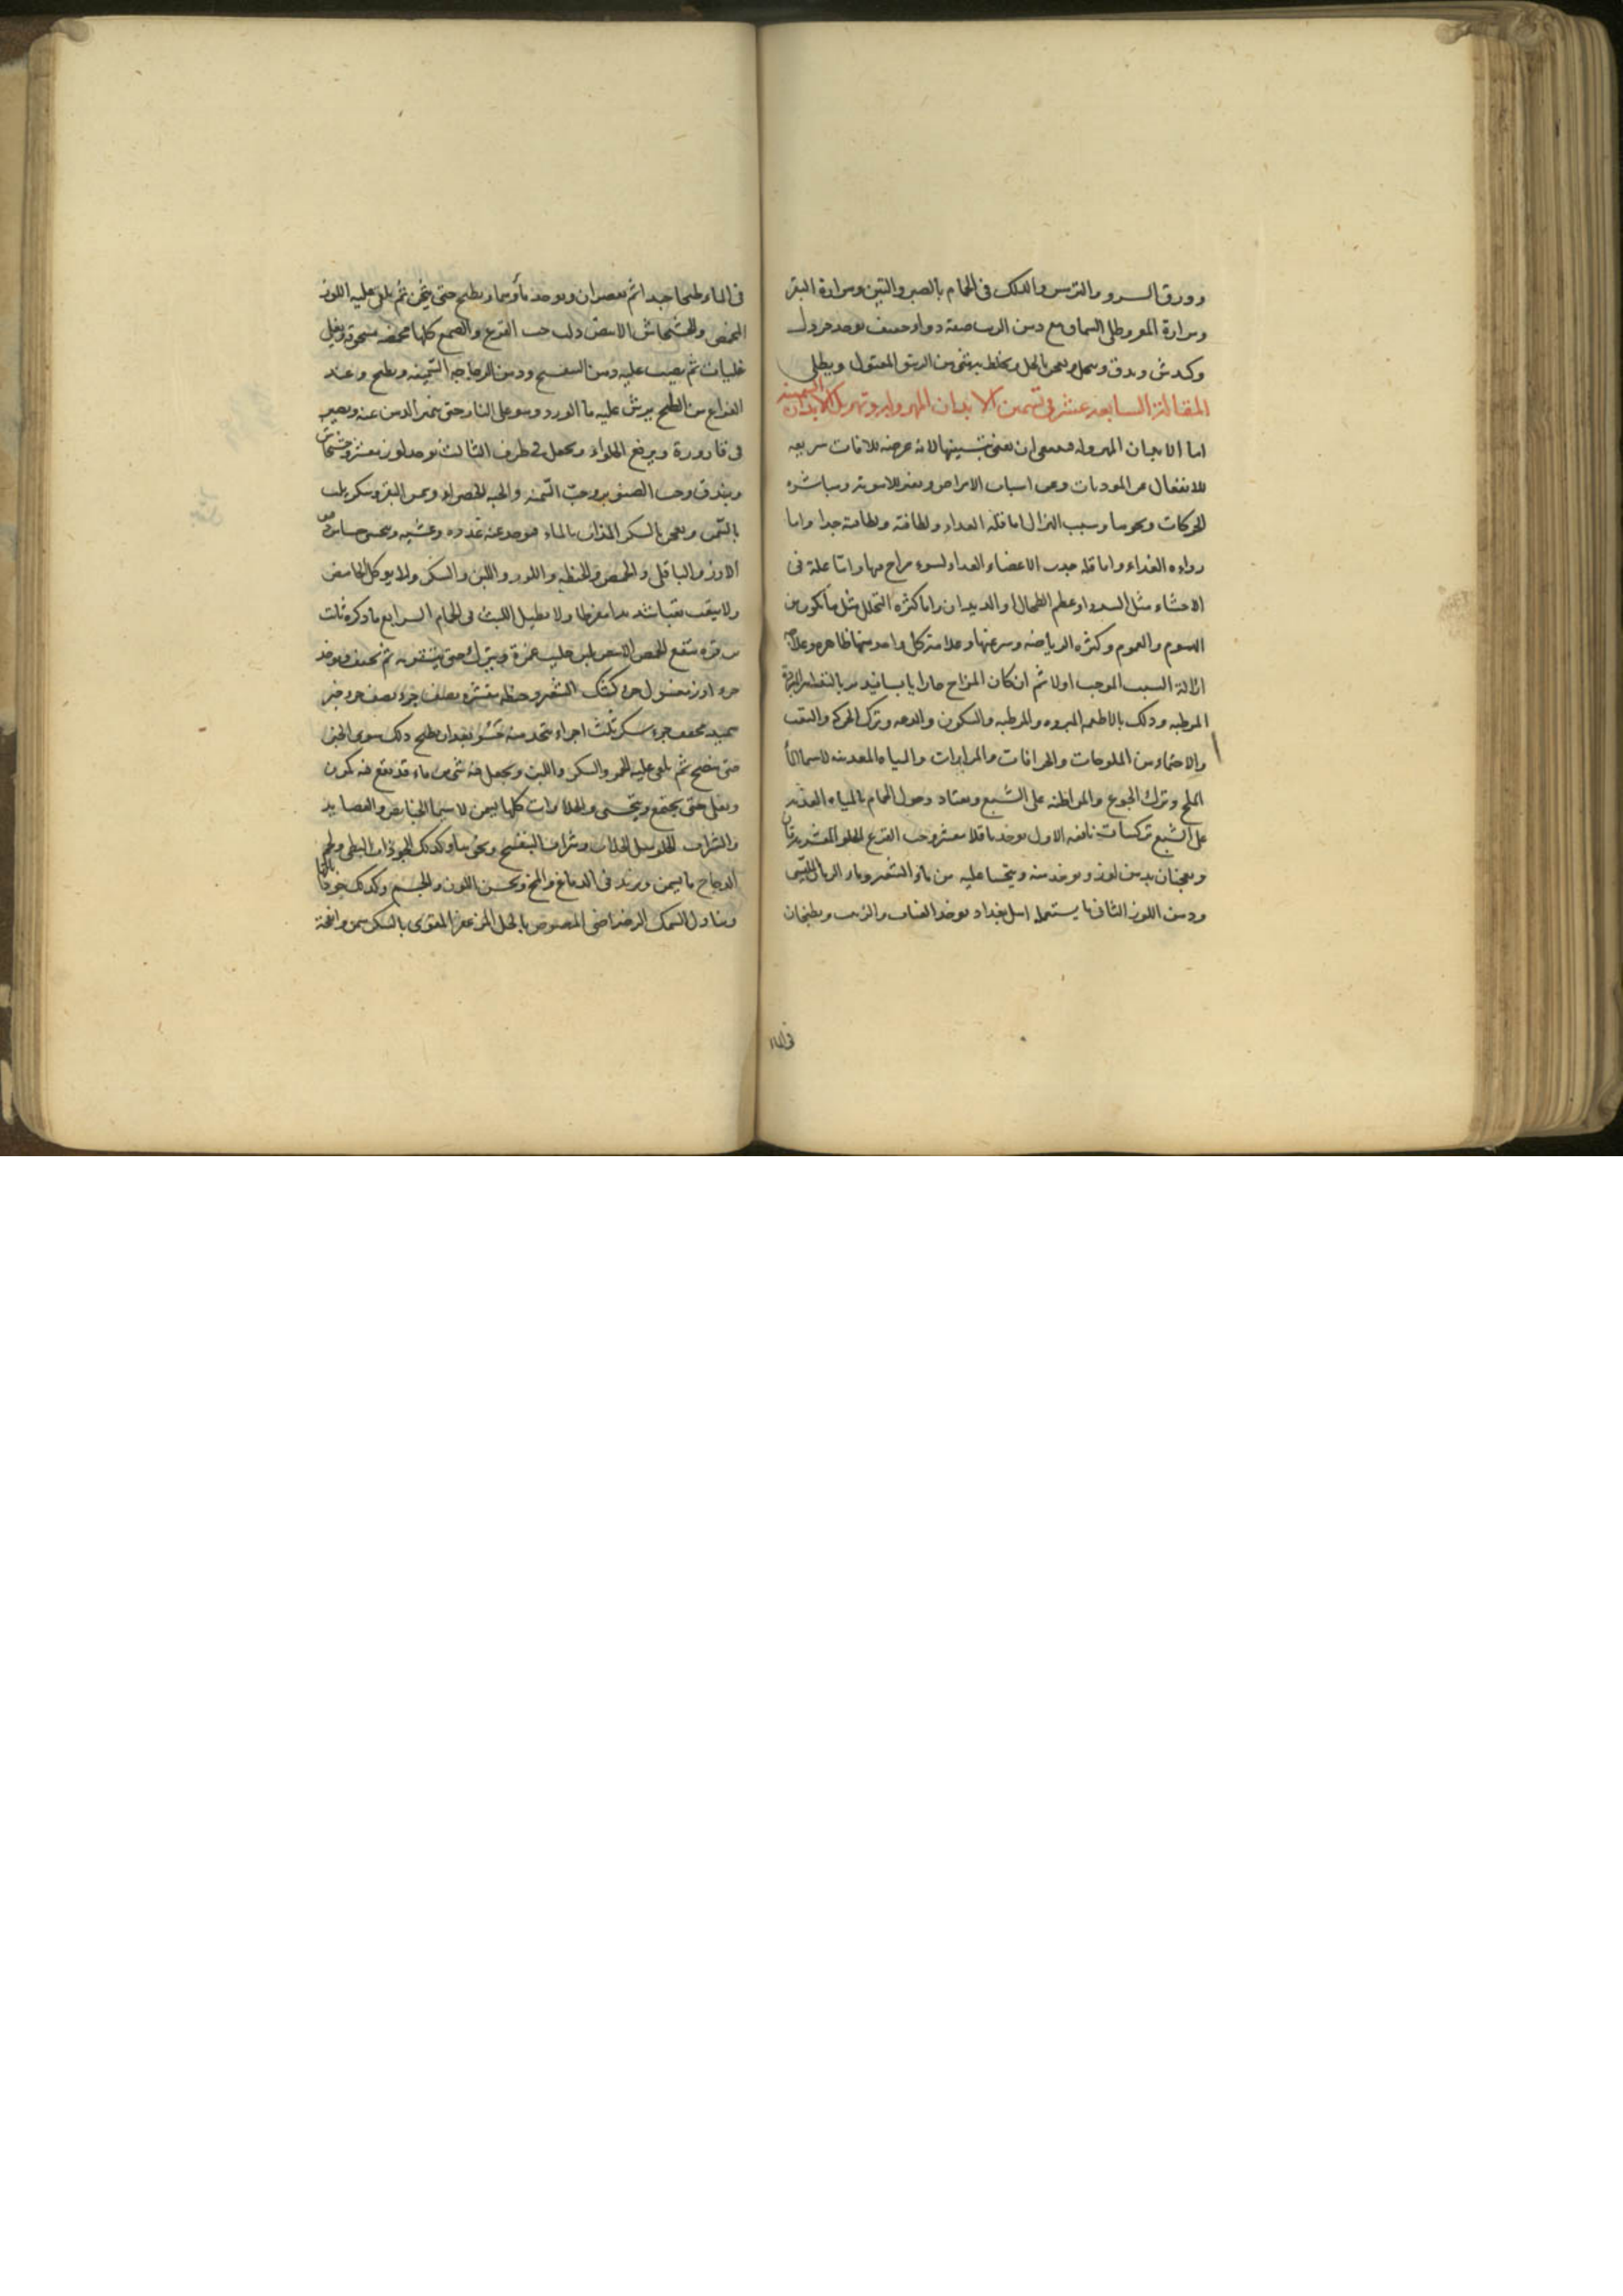 وورق السرو والترمس والدلك فى الحمام بالصبر والتين ومرارة البقر
ومرارة المعز وطلى السماق مع دهن الورد صفة دواء خفيف يوخذ خردل
وكندش ويدق وينخل ويعجن بالخل ويخلط به شى من الزيبق المقتول ويطلى
المقالة السابعة عشر فى تسمين الابدان المهزولة وتهزيل الابدان السمينة
اما الابدان المهزولة فينبغى ان يعنى بتسمينها لانه عرضة للافات سريعة
للانفعال عن الموذيات وعن اسباب الامراض ومباشرة
الحركات ونحوها وسبب الهزال اما قلة الغذاء ولطافته جدا واما
رداءة الغذاء واما قلة جذب الاعضاء الغذاء لسوء مزاج بها واما علة فى
الاحشاء مثل السدد او عظم الطحال او الديدان واما كثرة التحلل مثل ما يكون من
الهموم والغموم وكثرة الرياضة وسرعتها وعلامة كل واحد منها ظاهرة وعلاجه
ازالة السبب الموجب اولا ثم ان كان المزاج حارا يابسا
المرطبة وذلك بالاطعمة المبردة والمرطبة والسكون والدعة وترك الحركة والتعب
والاحتماء من الملوحات والحرافات والمرارات والمياه المعدنية لاسيما
الملح وترك الجوع والمواظبة على الشبع ويعتاد دخول الحمام بالمياه العذبة
على الشبع تركيبات نافعة الاول يوخذ باقلا مقشر وحب القرع الحلو المقشر يدقان
ويعجنان بدهن لوز ويوخذ منه ويتحسا عليه من ماء الشعير وماء
ودهن اللوز الثانى ما يستعمله اهل بغداد يوخذ العناب والزبيب ويطبخان
فى الماء
فى الماء طبخا جيدا ثم يعصران ويوخذ ماوهما ويطبخ حتى يثخن ثم يلقى عليه اللوز
المحمص والخشخاش الابيض ولب حب القرع والصمغ كلها محمصة مسحوقة ويغلى
غليات ثم يصب عليه دهن البنفسج ودهن السمينة ويطبخ وعند
الفراغ من الطبخ يرش عليه ماء الورد وهو على النار حتى يتميز الدهن عنه ويصير
فى قارورة ويرفع الحلواء ويجعل فى ظرف الثالث يوخذ لوز مقشر وخشخاش
وبندق وحب الصنوبر وحب السمنة والحبة الخضراء وسمن البقر وسكر يلت
بالسمن ويعجن بالسكر المذاب بالماء فيوخذ عنه غدوة وعشية
الارز والباقلى والحمص والحنطة واللوز واللبن والسكر ولا يوكل الحامض
ولا يتعب تعبا شديدا مفرطا ولا يطيل اللبث فى الحمام الرابع ما ذكره ثابت
بن قرة ينقع الحمص بلبن حليب ويترك حتى ثم يجفف ويوخذ
جزء ارز مغسول جزء كشك الشعير وحنطة مقشرة نصف جزء نصف جزء خبز
سميد مجفف جزء سكر ثلث اجزاء يتخذ منه حسو بعد ان يطبخ ذلك سوى الخبز
حتى ينضج ثم يلقى عليه الخبز والسكر واللبن ويجعل فيه شى من ماء قد نقع فيه كمون
ويغلى حتى يجتمع ويتحسى والحلاوات كلها يسمن لاسيما الخبايص والعصايد
والشراب الحلو مثل الجلاب وشراب البنفسج ونحوهما وكذلك لحم البط ولحم
الدجاج ما يسمن ويزيد فى الدماغ والمخ ويحسن اللون والجسم وكذلك
وتناول السمك الرضراضى المصوص بالخل المزعفر المقوى بالسكر